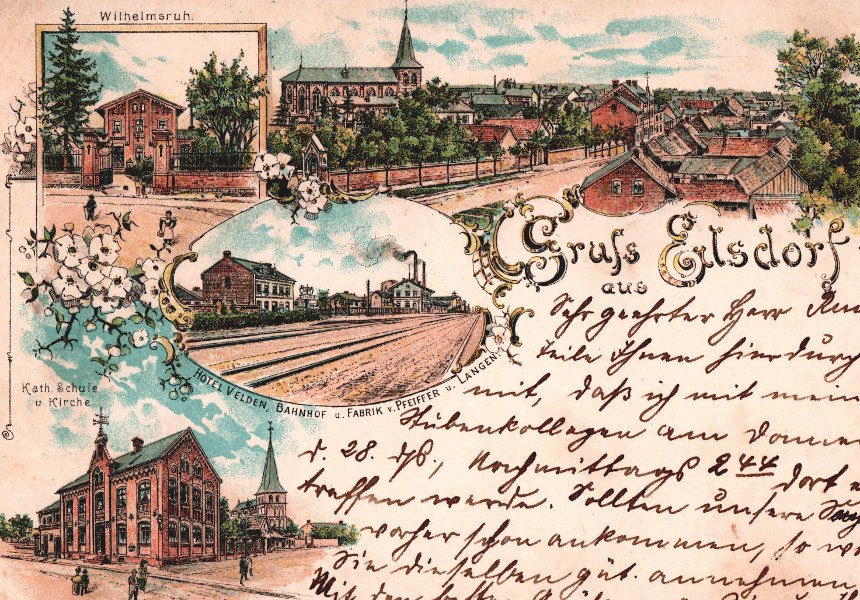 Wilhelmsruh.
Gruss
aus
Elsdorf
HOTEL VELDEN, BAHNHOF u. FABRIK v. PFEIFFER u. LANGEN
Kath. Schule
u. Kirche
Sehr geehrter Herr
teile Ihnen hierdurch
mit, daß ich mit mein
Stubenkollegen am Donner
d. 28. ds., Nachmittags 2 44 dort
treffen werde. Sollten unsere
vorher schon ankommen, so
Sie dieselben güt. annehmen
Mit den besten